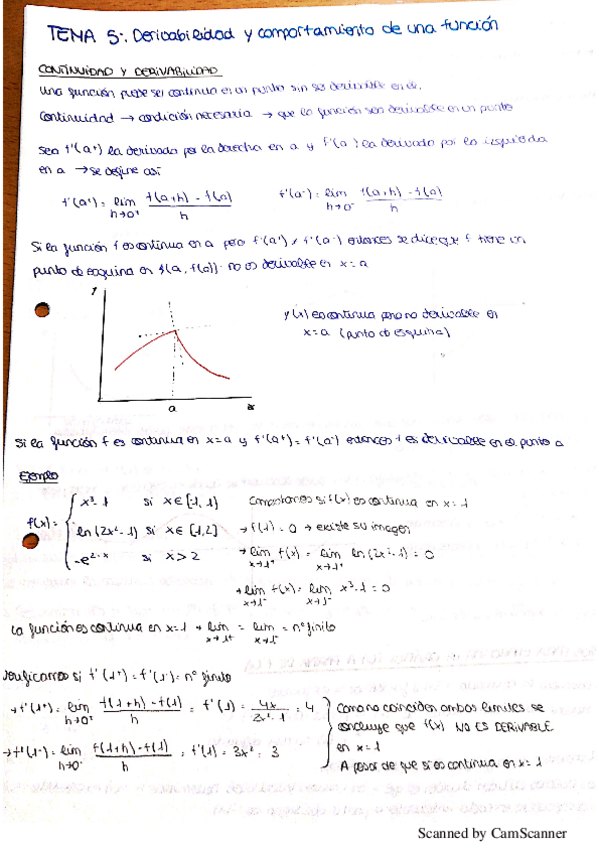 TEMA 5: Derivabilidad y comportamiento de una función
CONTINUIDAD Y DERIVABILIDAD
Una función puede ser continua en un punto sin ser derivable en él.
Continuidad → condición necesaria → que la función sea derivable en un punto
Sea f'(a⁺) la derivada por la derecha en a y f'(a⁻) la derivada por la izquierda
en a → se define así
f'(a⁺) = lim h→0⁺ f(a+h) - f(a) / h    f'(a⁻) = lim h→0⁻ f(a+h) - f(a) / h
Si la función f es continua en a pero f'(a⁺) ≠ f'(a⁻) entonces se dice que f tiene un
punto de esquina en (a, f(a)) no es derivable en x = a
y
f(x) es continua pero no derivable en
x = a (punto de esquina)
a    x
Si la función f es continua en x = a y f'(a⁺) = f'(a⁻) entonces f es derivable en el punto a
Ejemplo
x³-1 si x∈[-1, 1)    Comprobamos si f(x) es continua en x = 1
f(x) = ln(2x²-1) si x∈[1,2]    → f(1) = 0 → existe su imagen
-e^(2-x) si x > 2    → lim x→1⁺ f(x) = lim x→1⁺ ln(2x²-1) = 0
→ lim x→1⁻ f(x) = lim x→1⁻ x³-1 = 0
La función es continua en x = 1 → lim x→1⁺ = lim x→1⁻ = nº finito
Verificamos si f'(1⁺) = f'(1⁻) = nº finito
→ f'(1⁺) = lim h→0⁺ f(1+h) - f(1) / h = f'(1) = 4x / 2x²-1 = 4    Como no coinciden ambos límites se
concluye que f(x) NO ES DERIVABLE
→ f'(1⁻) = lim h→0⁻ f(1+h) - f(1) / h = f'(1) = 3x² = 3    en x = 1
A pesar de que si es continua en x = 1
Scanned by CamScanner